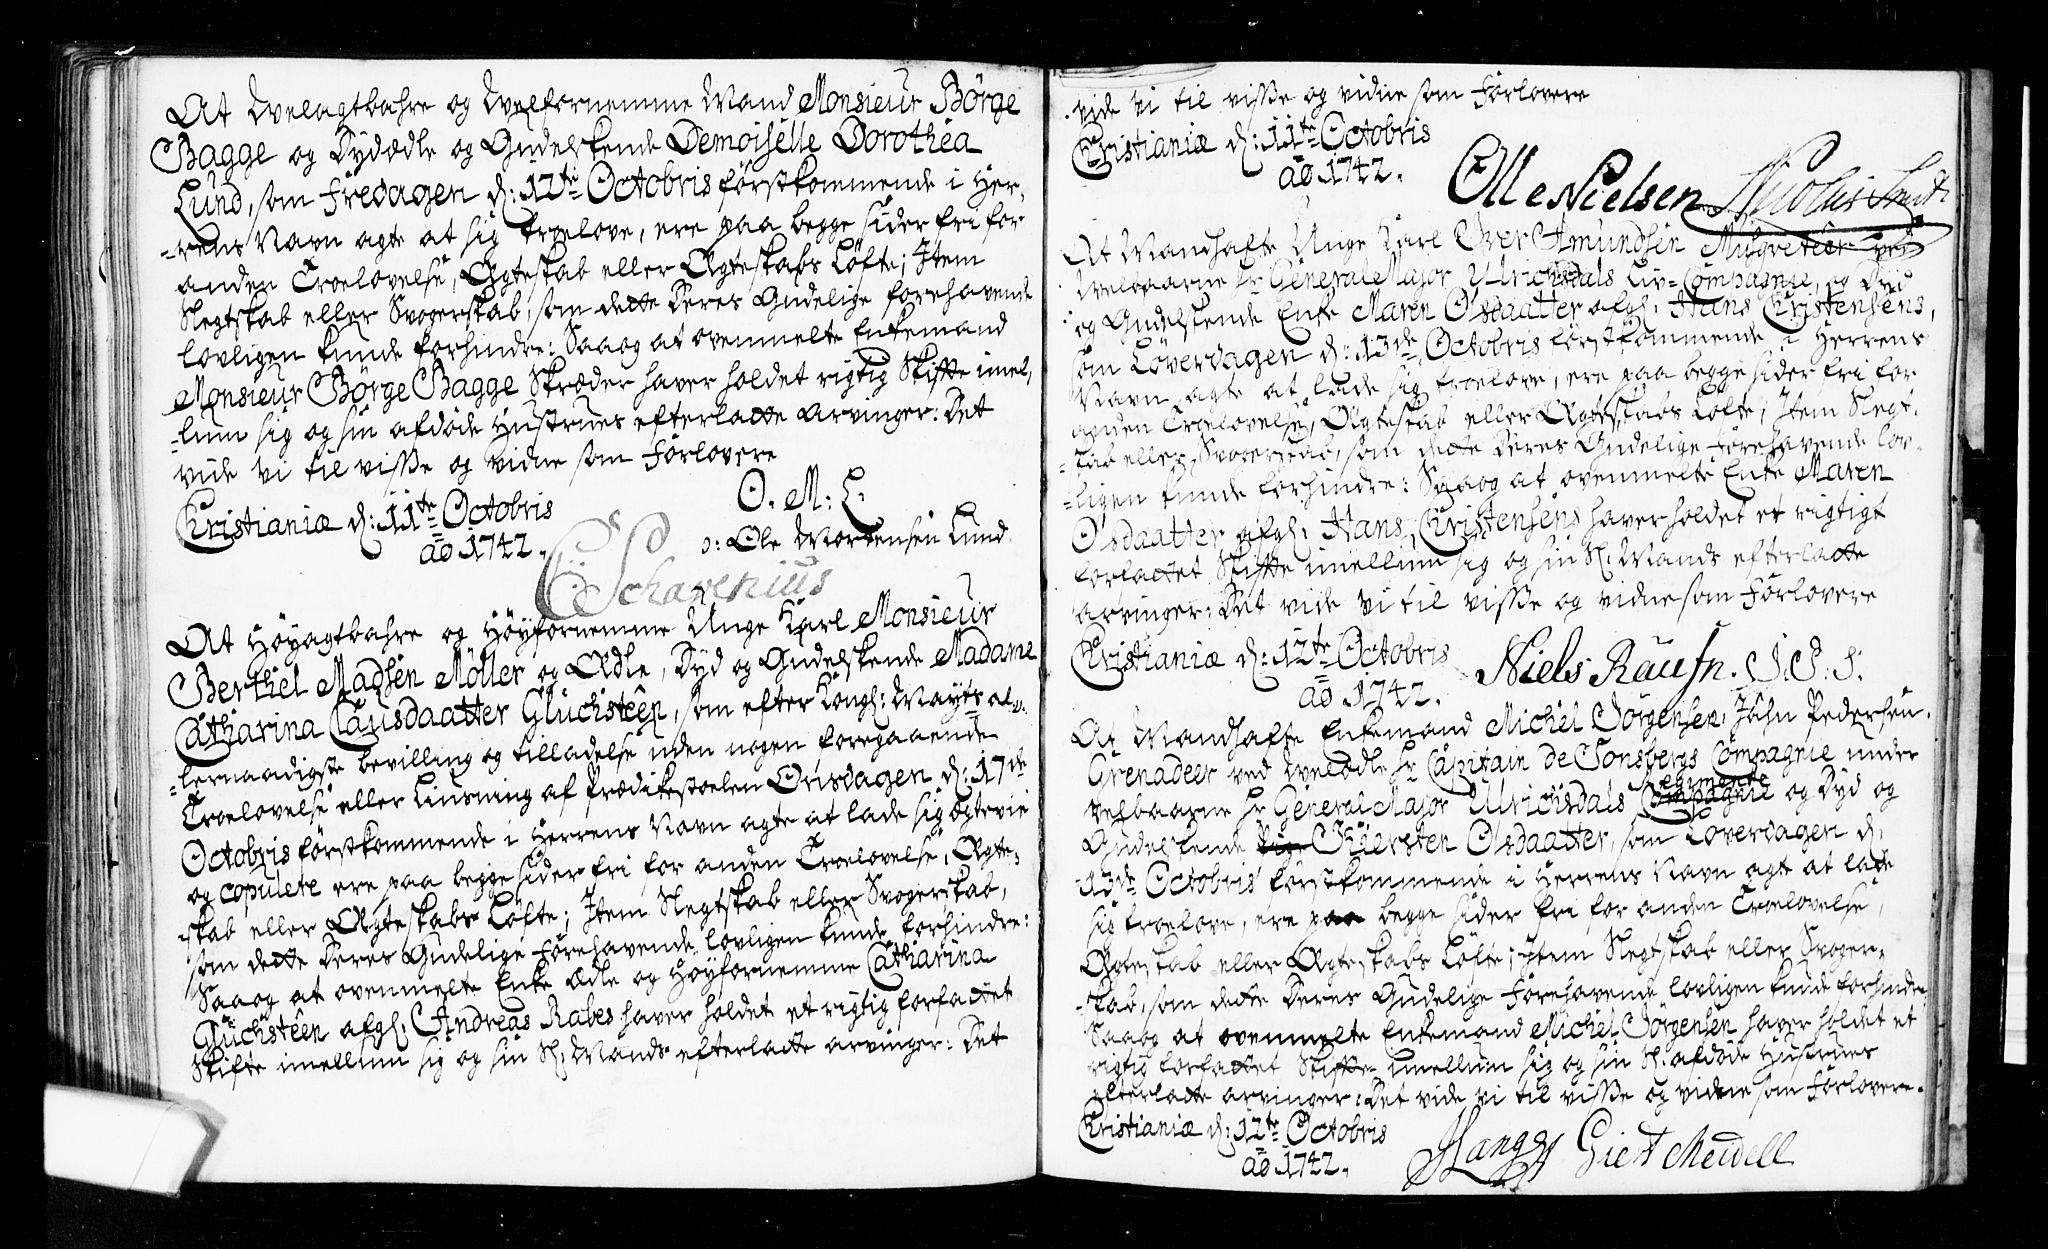 At Vvelagtbahre og Vvelfornemme Mand Monsieur Börge
Bagge og Dydædle og Gudelskende Demoiselle Dorothea
Lund, som Fredagen d: 12te Octobris förstkommende i Her-
-rens Navn agte at sig troelove, ere paa begge sider fri for
anden Troelovelse, Ægteskab eller Ægteskabs Löfte; Item
Slegtskab eller Svogerskab, som dette Deres Gudelige forehavende
lovligen kunde forhindre: Saaog at ovenmelte Enkemand
Monsieur Börge Bagge Skræder haver holdet rigtig Skifte imel-
-lum sig og sin afdöde Hustrues efterladte arvinger: Det
vide vi til visse og vidne som Forlovere
Christianiæ d: 11te Octobris
ao 1742.
O. M: L:
ɔ: Ole Mortensen Lund.
C Schavenius
At Höyagtbahre og Höyfornemme Unge Karl Monsieur
Berthel Madsen Möller og Ædle, Dyd og Gudelskende Madame
Catharina Clausdaatter Gluchsteen, som efter Kongl: Mayts al-
-lernaadigste bevilling og tilladelse uden nogen foregaaende
Troelovelse eller Liusning af Prædikestoelen Onsdagen d: 17de
Octobris förstkommende i Herrens Navn agte at lade sig ægtevie
og copulere ere paa begge sider fri for anden Troelovelse, Ægte-
-skab eller Ægteskabs Löfte; Item Slegtskab eller Svogerskab,
som dette Deres Gudelige Forehavende lovligen kunde forhindre:
Saaog at ovenmelte Enke Ædle og Höyfornemme Catharina
Gluchsteen afgl: Andreas Rabes haver holdet et rigtig forfattet
Skifte imellum sig og sin Sl: Mands efterladte arvinger: Det
vide vi til visse og vidne som Forlovere
Christianiæ d: 11te Octobris
ao 1742.
Olle Nielsen Nicolai Smidt
At Mandhafte Unge Karl Iver Amundsen Musqveteer ved
Velbaarne Hr General Major Ulrichsdals Liv-Compagnie, og Dyd
og Gudelskende Enke Maren Olsdaatter afgl: Hans Christensens,
som Löverdagen d: 13de Octobris förstkommende i Herrens
Navn agte at lade sig troelove, ere paa begge sider fri for
anden Troelovelse, Ægteskab eller Ægteskabs Löfte; Item Slegt-
-skab eller Svogerskab, som dette Deres Gudelige Forehavende lov-
-ligen kunde forhindre: Saaog at ovenmelte Enke Maren
Olsdaatter afgl: Hans Christensens haver holdet et rigtigt
forfattet Skifte imellum sig og sin Sl: Mands efterladte
arvinger: Det vide vi til visse og vidne som Forlovere
Christianiæ d: 12te Octobris
ao 1742.
Niels Raufn. I: P: S:
John Pedersen.
At Mandhafte Enkemand Michel Jörgensen,
Grenadeer ved Velædle Hr Capitain de Tonsbergs Compagnie under
Velbaarne Hr General Major Ulrichsdals Compagnie Regimente og Dyd og
Gudelskende Pige Chiersten Olsdaatter, som Loverdagen d:
13de Octobris förstkommende i Herrens Navn agte at lade
sig troelove, ere paa begge sider fri for anden Troelovelse,
Ægteskab eller Ægteskabs Löfte; Item Slegtskab eller Svoger-
-skab, som dette Deres Gudelige Forehavende lovligen kunde forhindre
Saaog at ovenmelte Enkemand Michel Jörgensen haver holdet et
rigtig forfattet Skifte imellum sig og sin Sl: afdöde Hustrues
efterladte arvinger: Det vide vi til visse og vidne som Forlovere.
Christianiæ d: 12te Octobris
ao 1742.
Giert Meidell